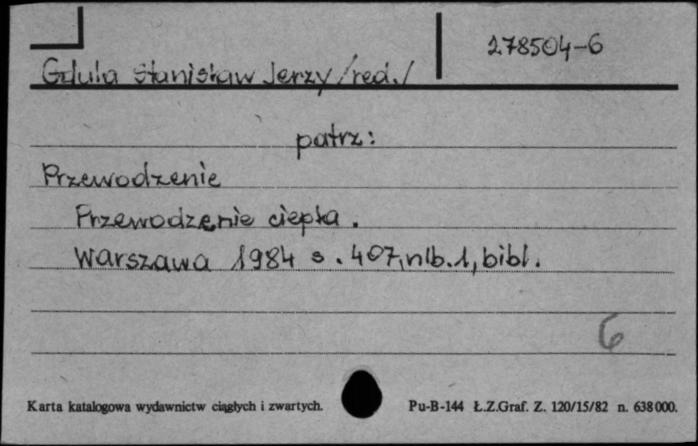 278504-6
Gdula Stanisław Jerzy /red./
patrz:
Przewodzenie
Przewodzenie ciepła.
Warszawa 1984 s. 407, nlb. 1, bibl.
6
Karta katalogowa wydawnictw ciągłych i zwartych.
Pu-B-144 Ł.Z.Graf. Z. 120/15/82 n. 638000.